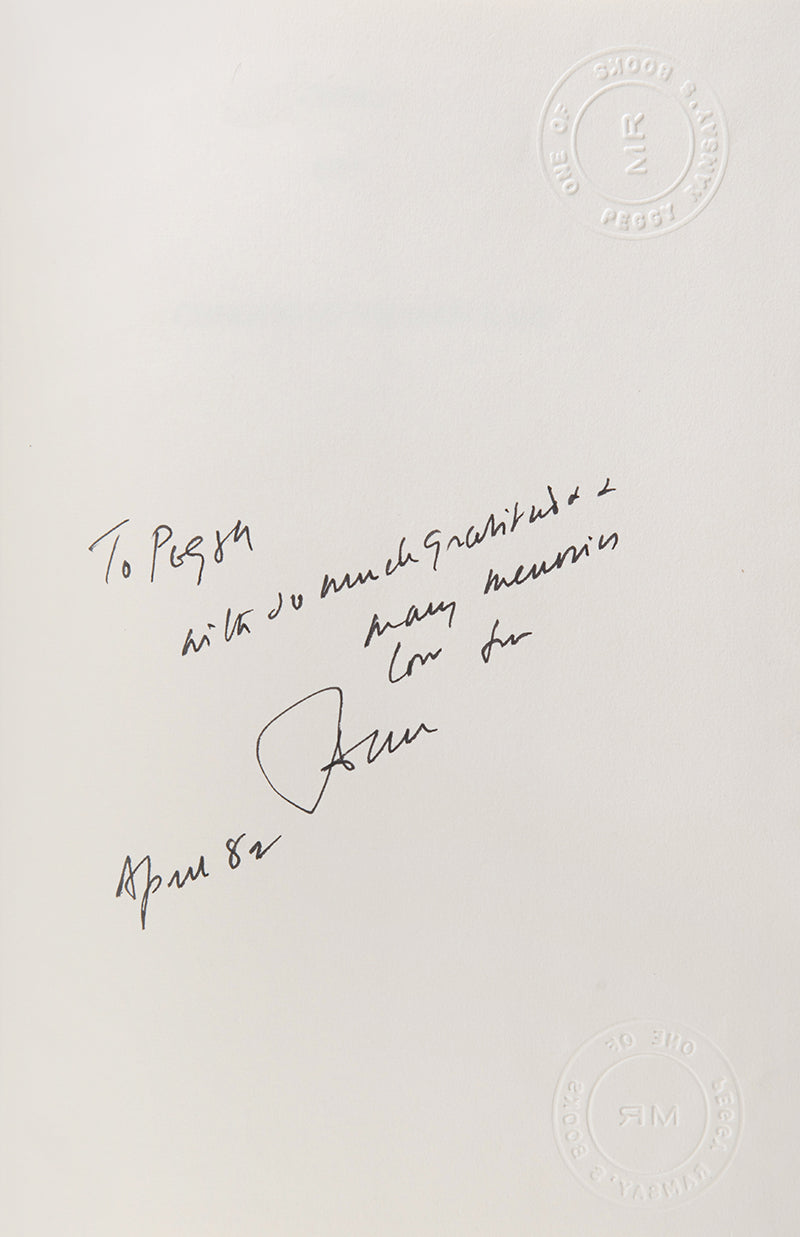 ONE OF PEGGY RAMSAY'S BOOKS
MR
To Peggy
with so much gratitude &
many memories
love from
April 82
ONE OF PEGGY RAMSAY'S BOOKS
MR